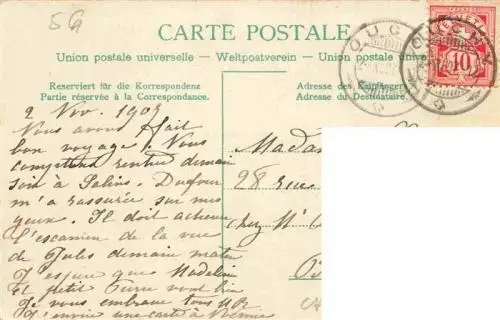 56
CARTE POSTALE
Union postale universelle — Weltpostverein — Unione postale
Reserviert für die Korrespondenz
Partie réservée à la Correspondance.
Adresse des Empfängers
Adresse du Destinataire.
OUCHY
HELVETIA
10
2 Nov. 1905
Nous avons fait
bon voyage. Nous
comptons rentrer demain
soir à Salins. Dufour
m'a rassurée sur mes
yeux. Il doit achever
l'examen de la vue
de Jules demain matin
J'espère que Madeleine
et petit Pierre vont bien
Je vous embrasse tous
J'envoie une carte à
Madam
28 rue
chez Mr